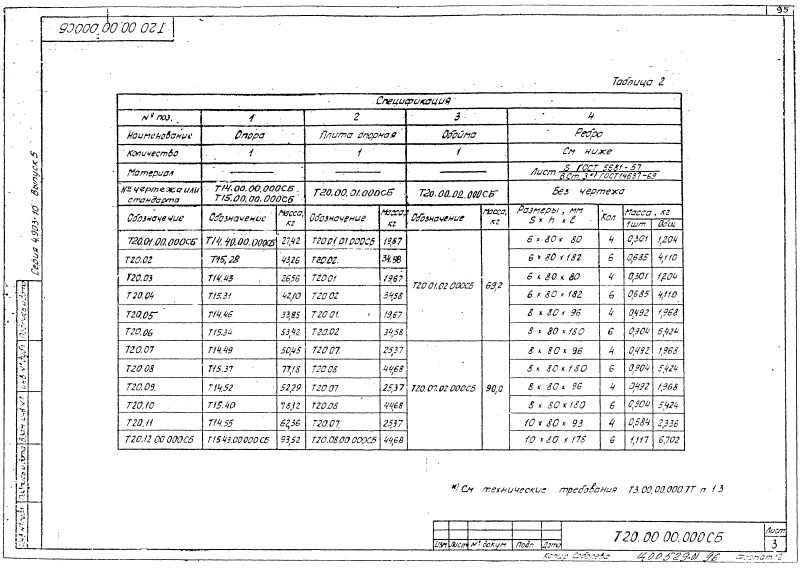 95
Т20.00.00.000СБ
Таблица 2
Спецификация
№ поз. 1 2 3 4
Наименование Опора Плита опорная Обойма Ребро
Количество 1 1 1 См ниже
Материал — — — Лист S ГОСТ 5681-57 / В.Ст.3 *) ГОСТ 14637-69
№ чертежа или стандарта Т14.00.00.000СБ Т15.00.00.000СБ Т20.00.01.000СБ Т20.00.02.000СБ Без чертежа
Обозначение Обозначение Масса, кг Обозначение Масса, кг Обозначение Масса, кг Размеры, мм S × h × ℓ Кол Масса, кг 1шт Общ
Т20.01.00.000СБ Т14.40.00.000СБ 27,42 Т20.01.01.000СБ 19,67 6 × 80 × 80 4 0,301 1,204
Т20.02 Т15.28 43,26 Т20.02. 34,58 6 × 80 × 182 6 0,685 4,110
Т20.03 Т14.43 26,56 Т20.01 19,67 6 × 80 × 80 4 0,301 1,204
Т20.01.02.000СБ 69,2
Т20.04 Т15.31 42,10 Т20.02 34,58 6 × 80 × 182 6 0,685 4,110
Т20.05 Т14.46 33,85 Т20.01. 19,67 8 × 80 × 96 4 0,492 1,968
Т20.06 Т15.34 53,42 Т20.02 34,58 8 × 80 × 180 6 0,904 5,424
Т20.07 Т14.49 50,45 Т20.07. 25,37 8 × 80 × 96 4 0,492 1,968
Т20.08 Т15.37 77,18 Т20.08 44,68 8 × 80 × 180 6 0,904 5,424
Т20.09. Т14.52 52,29 Т20.07 25,37 Т20.07.02.000СБ 90,0 8 × 80 × 96 4 0,492 1,968
Т20.10 Т15.40 78,12 Т20.08 44,68 8 × 80 × 180 6 0,904 5,424
Т20.11 Т14.55 62,36 Т20.07. 25,37 10 × 80 × 93 4 0,584 2,336
Т20.12.00.000СБ Т15.43.00.000СБ 93,52 Т20.08.00.000СБ 44,68 10 × 80 × 178 6 1,117 6,702
*) См технические требования Т3.00.00.000ТТ п 1.3
Серия 4.903-10 Выпуск 5
Т20.00.00.000СБ
Лист
3
Изм Лист № докум Подп Дата
Копир
Формат 12